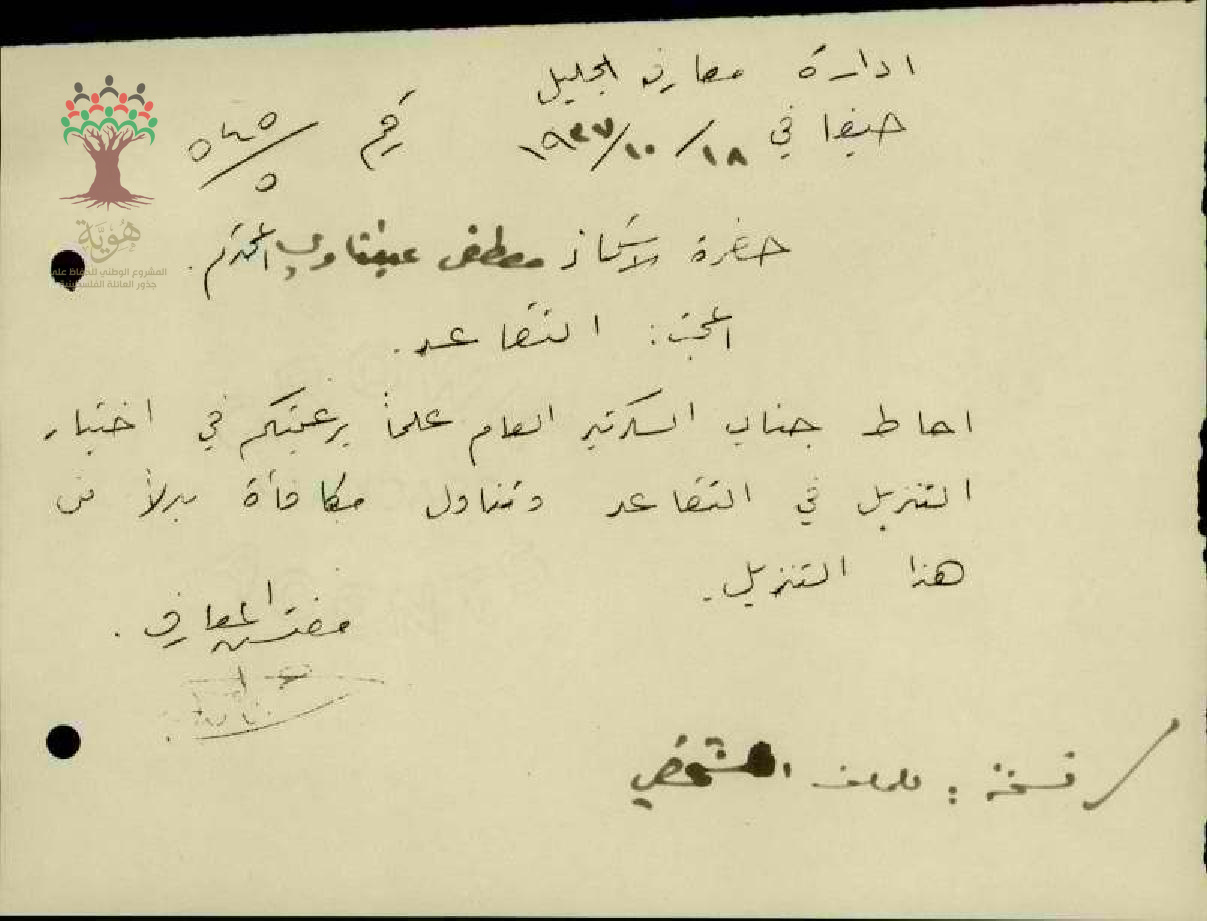 ادارة معارف الجليل
حيفا في ١٨/١٠/١٩٢٧ رقم ٥٤٥/٥
حضرة الاستاذ مصطفى المحترم.
المبحث: التقاعد.
احاط جناب السكرتير العام علماً برغبتكم في اختيار
التنزيل في التقاعد وتناول مكافأة بدلاً من
هذا التنزيل.
مفتش المعارف.
نسخة: للملف الشخصي
هُوِيَّة
المشروع الوطني للحفاظ على
جذور العائلة الفلسطينية